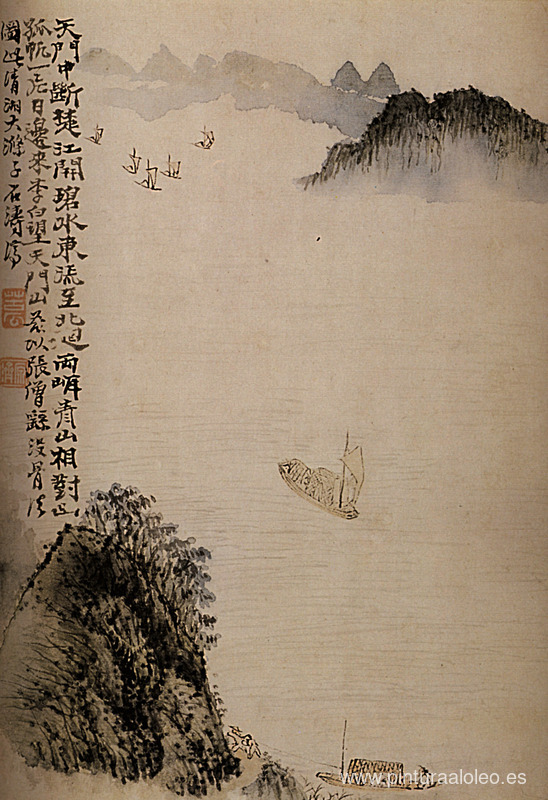 天門中斷楚江開碧水東流至北迴兩岸青山相對出
孤帆一片日邊來李白望天門山茲以張僧繇没骨法
圖此清湘大滌子石濤濟
www.pinturaaloleo.es